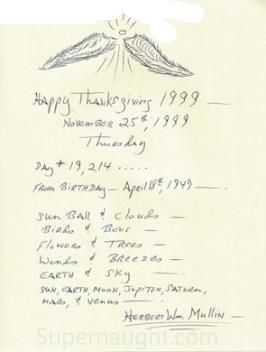 Happy Thanksgiving 1999 —
November 25th, 1999
Thursday
Day # 19,214 .....
From Birthday — April 18th, 1947 —
Sun Ball & Clouds —
Birds & Bees —
Flowers & Trees —
Winds & Breezes —
Earth & Sky —
Sun, Earth, Moon, Jupiter, Saturn,
Mars, & Venus —
Herbert Wm. Mullin —
Supernaught.com